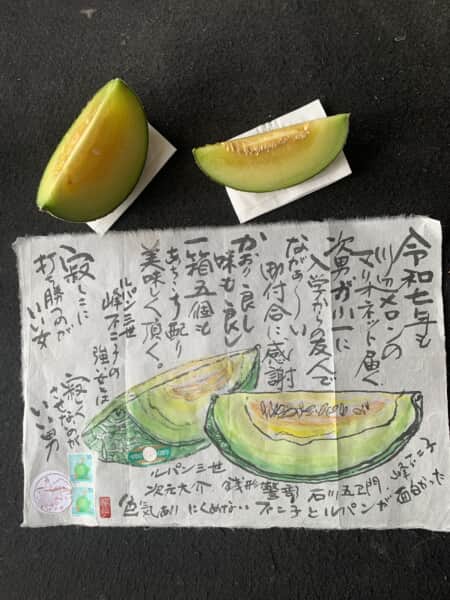 令和七年も
メロンの
マリオネット届く
次男が小一に
入学からの友人で
ながぁ～い
お付合に感謝
かおり良し
味も良し
一箱五個も
あちこち配り
美味しく頂く。
ルパン三世
峰不二子の
強さとは
寂しさに
打ち勝つのが
いい女
寂しく
させないのが
いい男
ルパン三世
次元大介 銭形警部 石川五ェ門、峰不二子
色気あり にくめない 不二子とルパンが面白かった